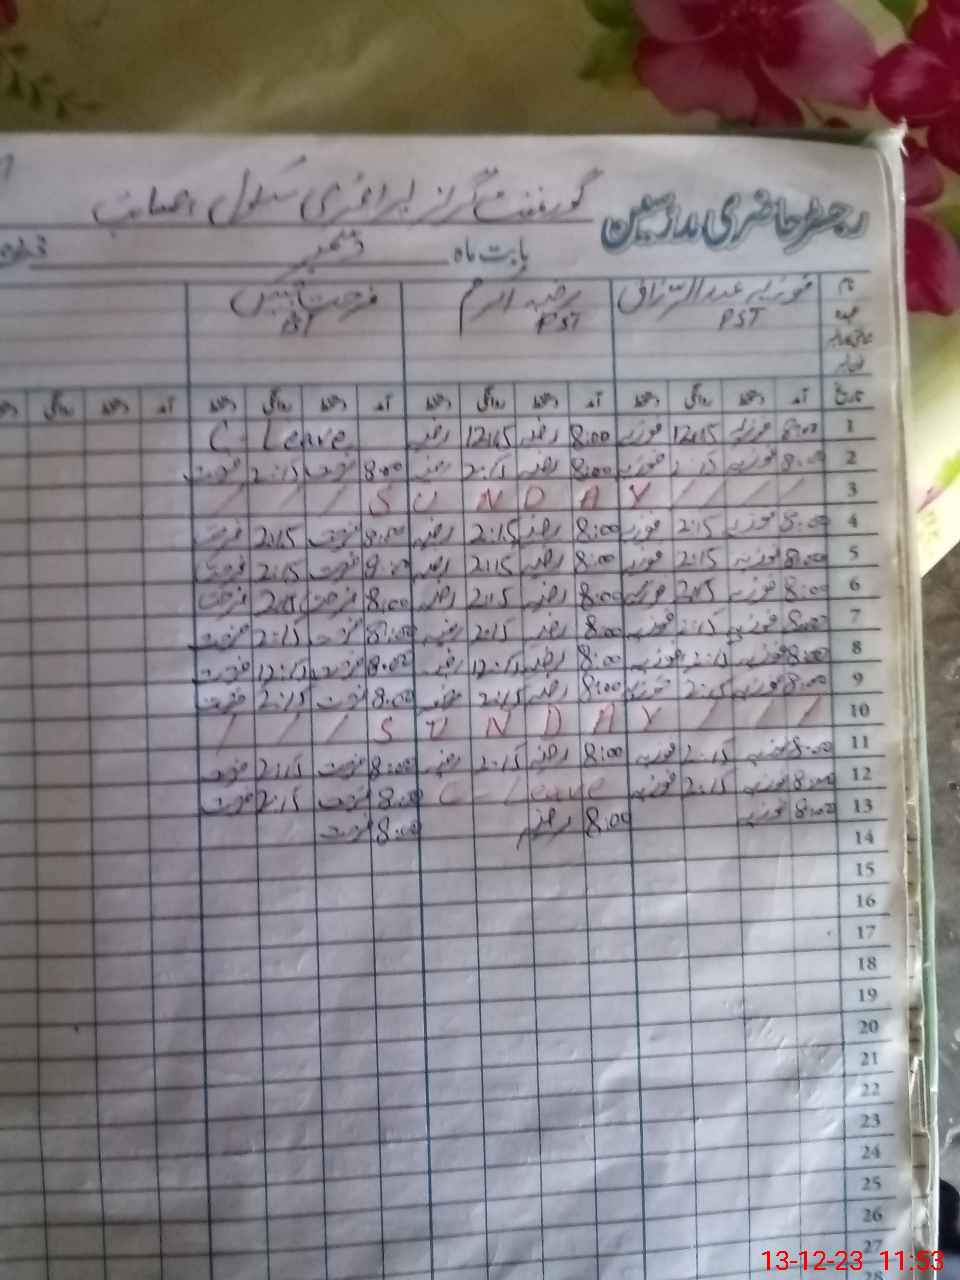 رجسٹر حاضری مدرسین گورنمنٹ گرلز پرائمری سکول
بابت ماہ دسمبر
نام فوزیہ عبدالرزاق رضیہ اکرم فرحت
عہدہ PST PST PST
تاریخ آمد دستخط روانگی دستخط آمد دستخط روانگی دستخط آمد دستخط روانگی دستخط آمد دستخط روانگی دستخط
1 8:00 فوزیہ 12:15 فوزیہ 8:00 رضیہ 12:15 رضیہ C- Leave
2 8:00 فوزیہ 2:15 فوزیہ 8:00 رضیہ 2:15 رضیہ 8:00 فرحت 2:15 فرحت
3 / / / S U N D A Y / / /
4 8:00 فوزیہ 2:15 فوزیہ 8:00 رضیہ 2:15 رضیہ 8:00 فرحت 2:15 فرحت
5 8:00 فوزیہ 2:15 فوزیہ 8:00 رضیہ 2:15 رضیہ 8:00 فرحت 2:15 فرحت
6 8:00 فوزیہ 2:15 فوزیہ 8:00 رضیہ 2:15 رضیہ 8:00 فرحت 2:15 فرحت
7 8:00 فوزیہ 2:15 فوزیہ 8:00 رضیہ 2:15 رضیہ 8:00 فرحت 2:15 فرحت
8 8:00 فوزیہ 12:15 فوزیہ 8:00 رضیہ 12:15 رضیہ 8:00 فرحت 12:15 فرحت
9 8:00 فوزیہ 2:15 فوزیہ 8:00 رضیہ 2:15 رضیہ 8:00 فرحت 2:15 فرحت
10 / / / S U N D A Y / / /
11 8:00 فوزیہ 2:15 فوزیہ 8:00 رضیہ 2:15 رضیہ 8:00 فرحت 2:15 فرحت
12 8:00 فوزیہ 2:15 فوزیہ C- Leave 8:00 فرحت 2:15 فرحت
13 8:00 فوزیہ 8:00 رضیہ 8:00 فرحت
14
15
16
17
18
19
20
21
22
23
24
25
26
27
28
13-12-23 11:53